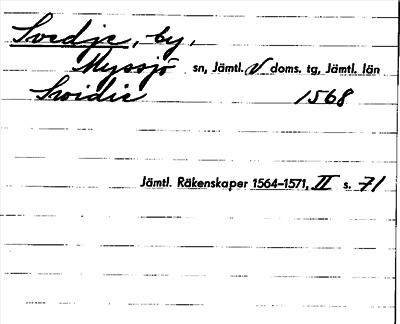 Svedje, by,
Myssjö sn, Jämtl. V doms. tg, Jämtl. län
Swidie 1568
Jämtl. Räkenskaper 1564–1571, II s. 71